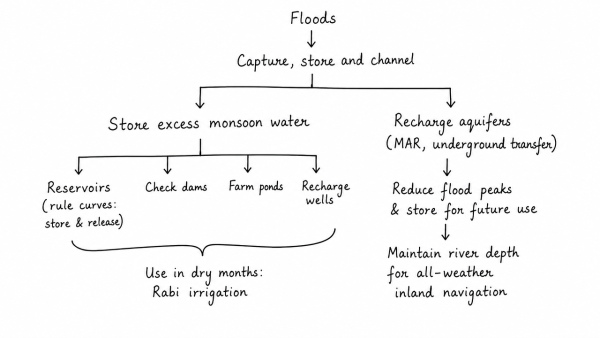 Floods
Capture, store and channel
Store excess monsoon water
Reservoirs
(rule curves:
store & release)
Check dams
Farm ponds
Recharge
wells
Use in dry months:
Rabi irrigation
Recharge aquifers
(MAR, underground transfer)
Reduce flood peaks
& store for future use
Maintain river depth
for all-weather
inland navigation